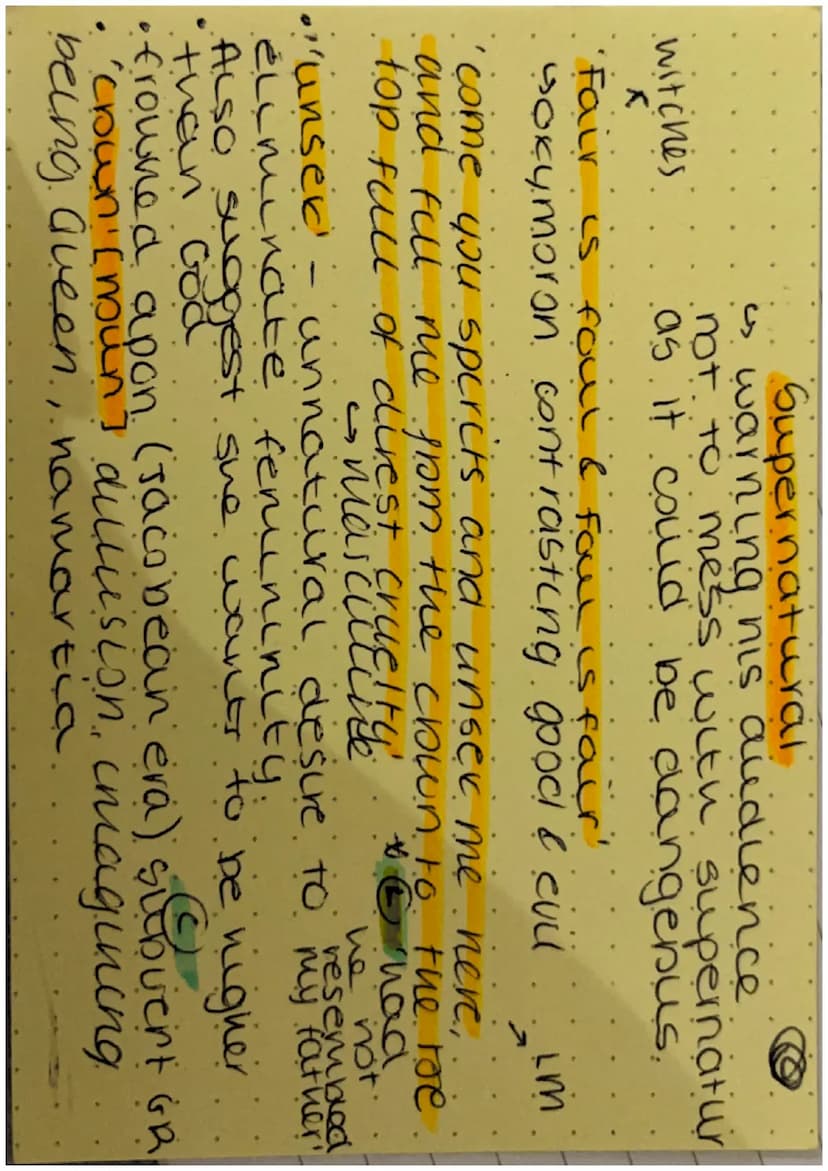 Supernatural
↳ warning his audience
not to mess with supernatur
witches as it could be dangerous.
'Fair is foul & foul is fair'
↳ oxymoron contrasting good & evil → LM
'come you spirits and unsex me here,
and fill me from the crown to the toe
top full of direst cruelty'
↳ masculine
* L 'had
he not
resembled
my father'
• 'unsex' - unnatural desire to
eliminate femininity.
Also suggest she wants to be higher
• than God
• frowned apon (jacobean era) subvert GR
C
• 'crown' [noun] dillusion, imagining
being Queen, hamartia